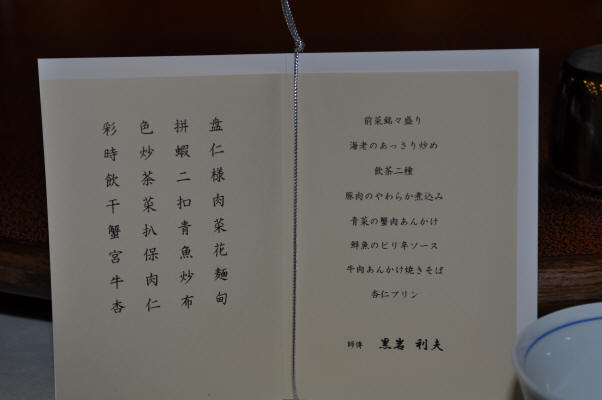 彩色拼盘
時炒蝦仁
飲茶二様
干菜扣肉
蟹扒青菜
宮保魚花
牛肉炒麵
杏仁布甸
前菜銘々盛り
海老のあっさり炒め
飲茶二種
豚肉のやわらか煮込み
青菜の蟹肉あんかけ
鮮魚のピリ辛ソース
牛肉あんかけ焼きそば
杏仁プリン
師傅 黒岩 利夫